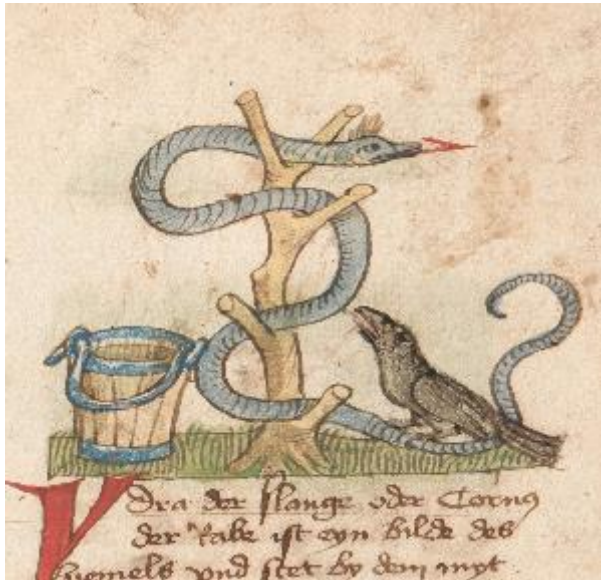 Ydra der slange oder Cornus
der Rabe ist eyn bilde des
hiemels vnd stet by dem myt